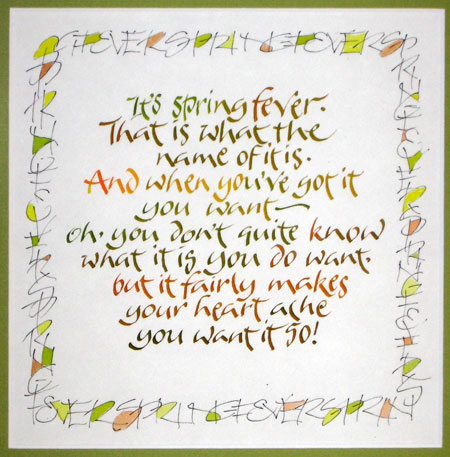 It's spring fever.
That is what the
name of it is.
And when you've got it
you want—
oh. you don't quite know
what it is you do want.
but it fairly makes
your heart ache
you want it so!